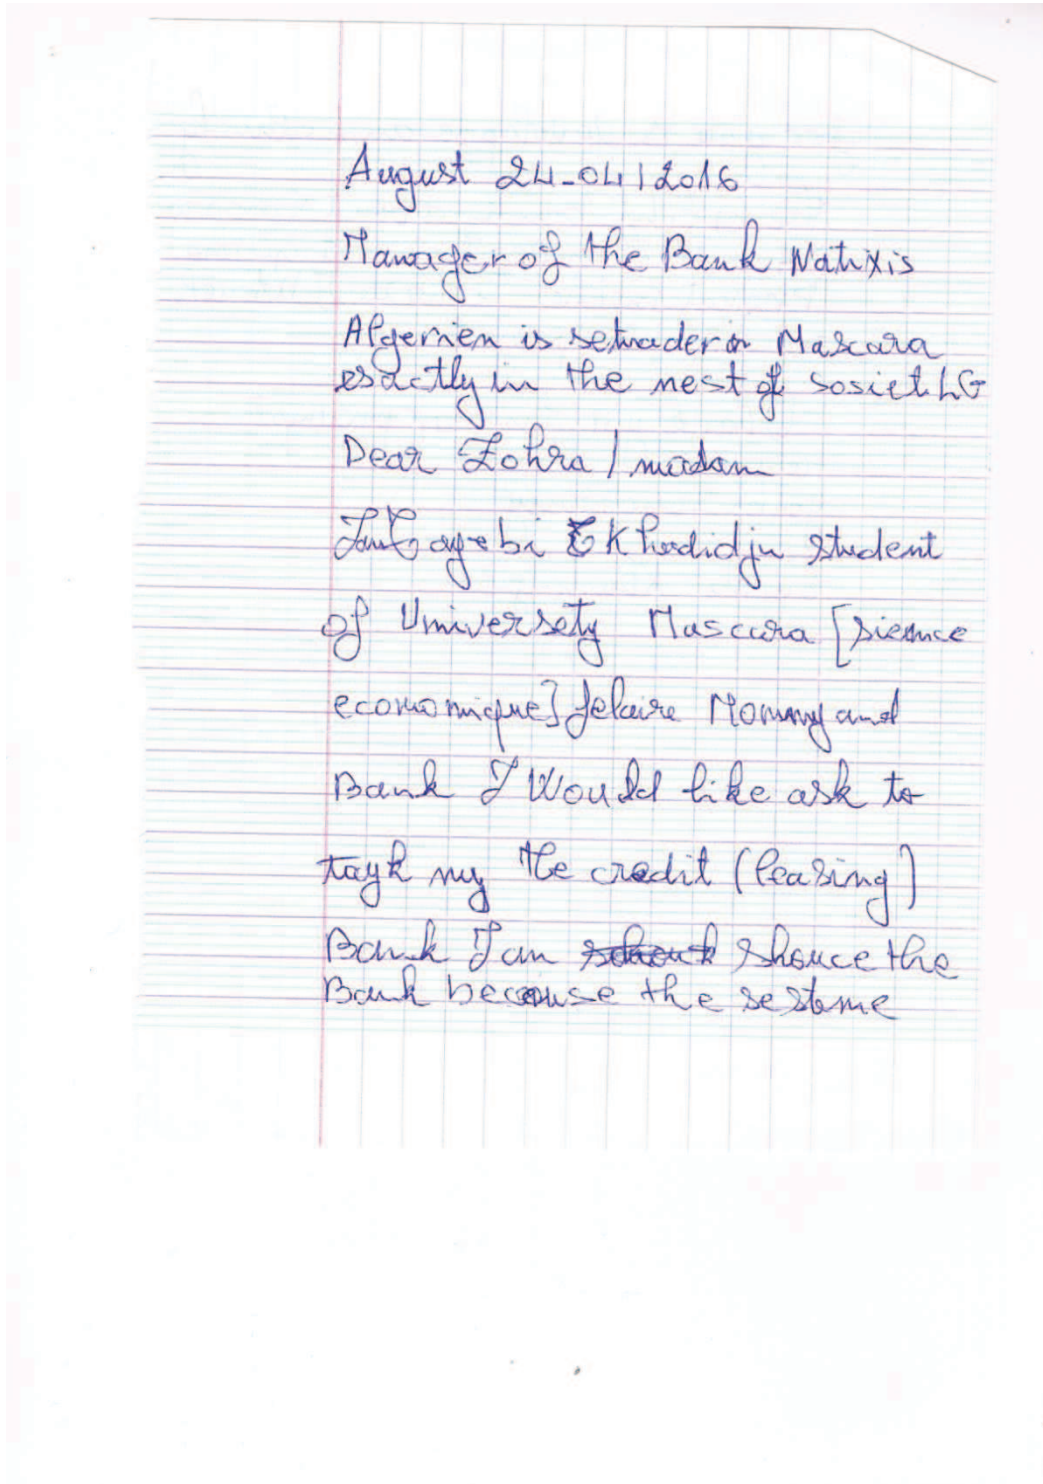 August 24-04/2016
Manager of the Bank Natixis
Algerien is setuader in Mascara
esactly in the nest of sosiet LG
Dear Zohra / madam
I am Tayebi Khadidja student
of Universety Mascara [sience
economique] felaire Monny and
Bank I Would like ask to
tayk my the credit (leasing)
Bank I am shouce the
Bank because the sesteme